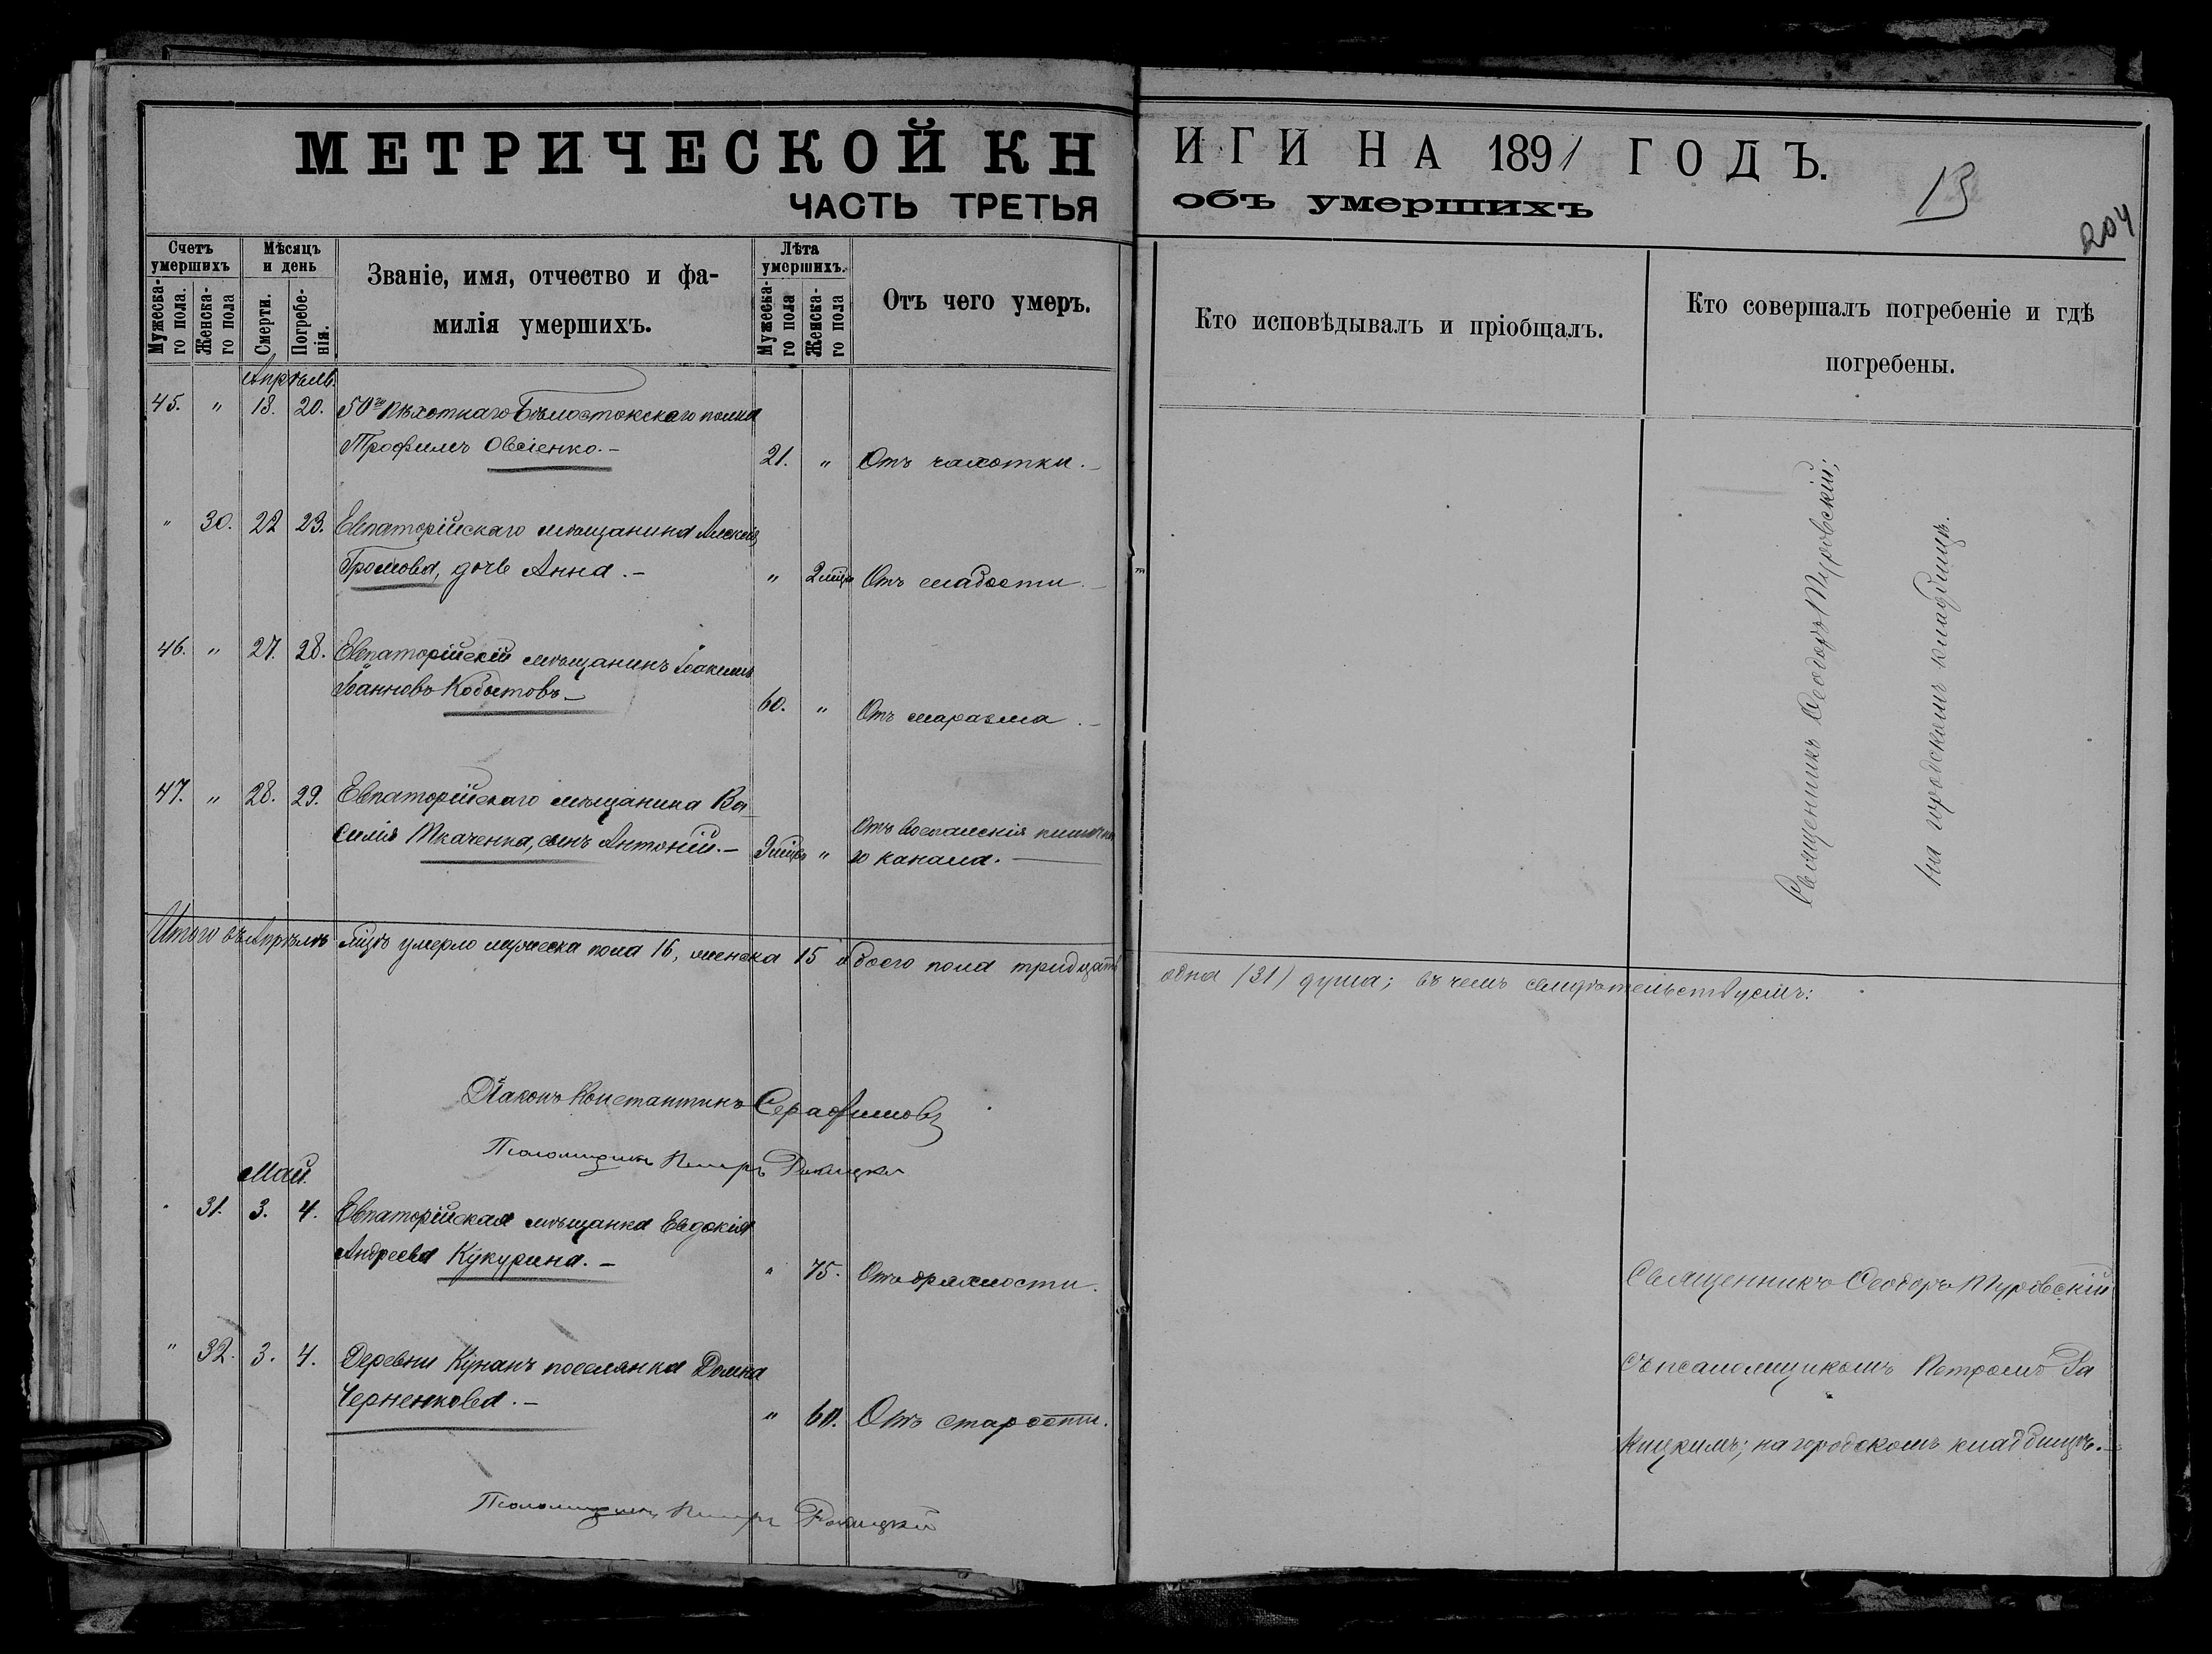 МЕТРИЧЕСКОЙ КНИГИ НА 1891 ГОДЪ.
ЧАСТЬ ТРЕТЬЯ объ умершихъ
13
204
Счетъ умершихъ
Мужескаго пола.
Женскаго пола
Мѣсяцъ и день
Смерти.
Погребенія.
Званіе, имя, отчество и фа-
милія умершихъ.
Лѣта умершихъ.
Мужескаго пола
Женскаго пола
Отъ чего умеръ.
Кто исповѣдывалъ и пріобщалъ.
Кто совершалъ погребеніе и гдѣ
погребены.
Апрѣль.
45. " 18. 20. 50го пѣхотнаго Бѣлостокскаго полка
Трофимъ Овсіенко.– 21. " Отъ чахотки.–
" 30. 22 23. Евпаторійскаго мѣщанина Алексѣя
Громова, дочь Анна.– " 2 мѣц. Отъ слабости.–
46. " 27. 28. Евпаторійскій мѣщанинъ Іоакимъ
Іоанновъ – 60. " Отъ маразма.–
47. " 28. 29. Евпаторійскаго мѣщанина Ва-
силія Ткаченка, сынъ Антоній.– " Отъ воспаленія
канала.–
Священникъ Ѳеодоръ Туровскій;
на городскомъ кладбищѣ.
Итого въ Апрѣлѣ мѣцѣ умерло мужеска пола 16, женска 15 обоего пола тридцать одна (31) душа; въ чемъ свидѣтельствуемъ:
Діаконъ Константинъ Серафимовъ
Псаломщикъ Петръ Ракицкій
Май.
" 31. 3. 4. Евпаторійская мѣщанка Евдокія
Андреева Кукурина.– " 75. Отъ дряхлости.
" 32. 3. 4. Деревни Кунанъ поселянка Домна
Черненкова.– " 60. Отъ старости.
Священникъ Ѳеодоръ Туровскій
съ псаломщикомъ Петромъ Ра
кицкимъ; на городскомъ кладбищѣ.–
Псаломщикъ Петръ Ракицкій